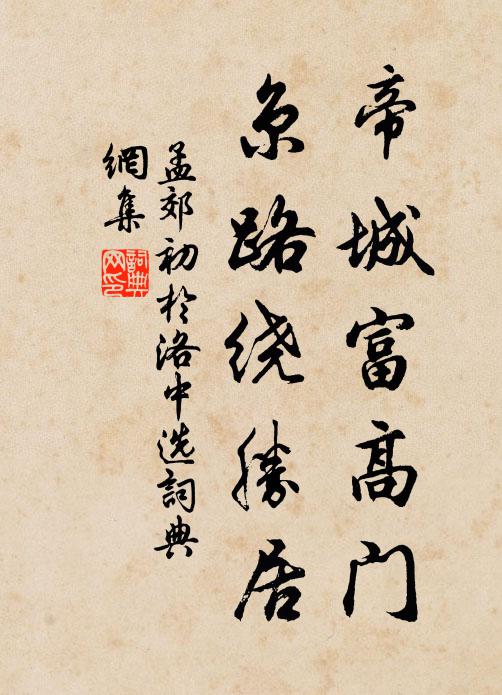 帝城富高门
京路绕胜居
孟郊初於洛中选詞典
網集
詞典
网印